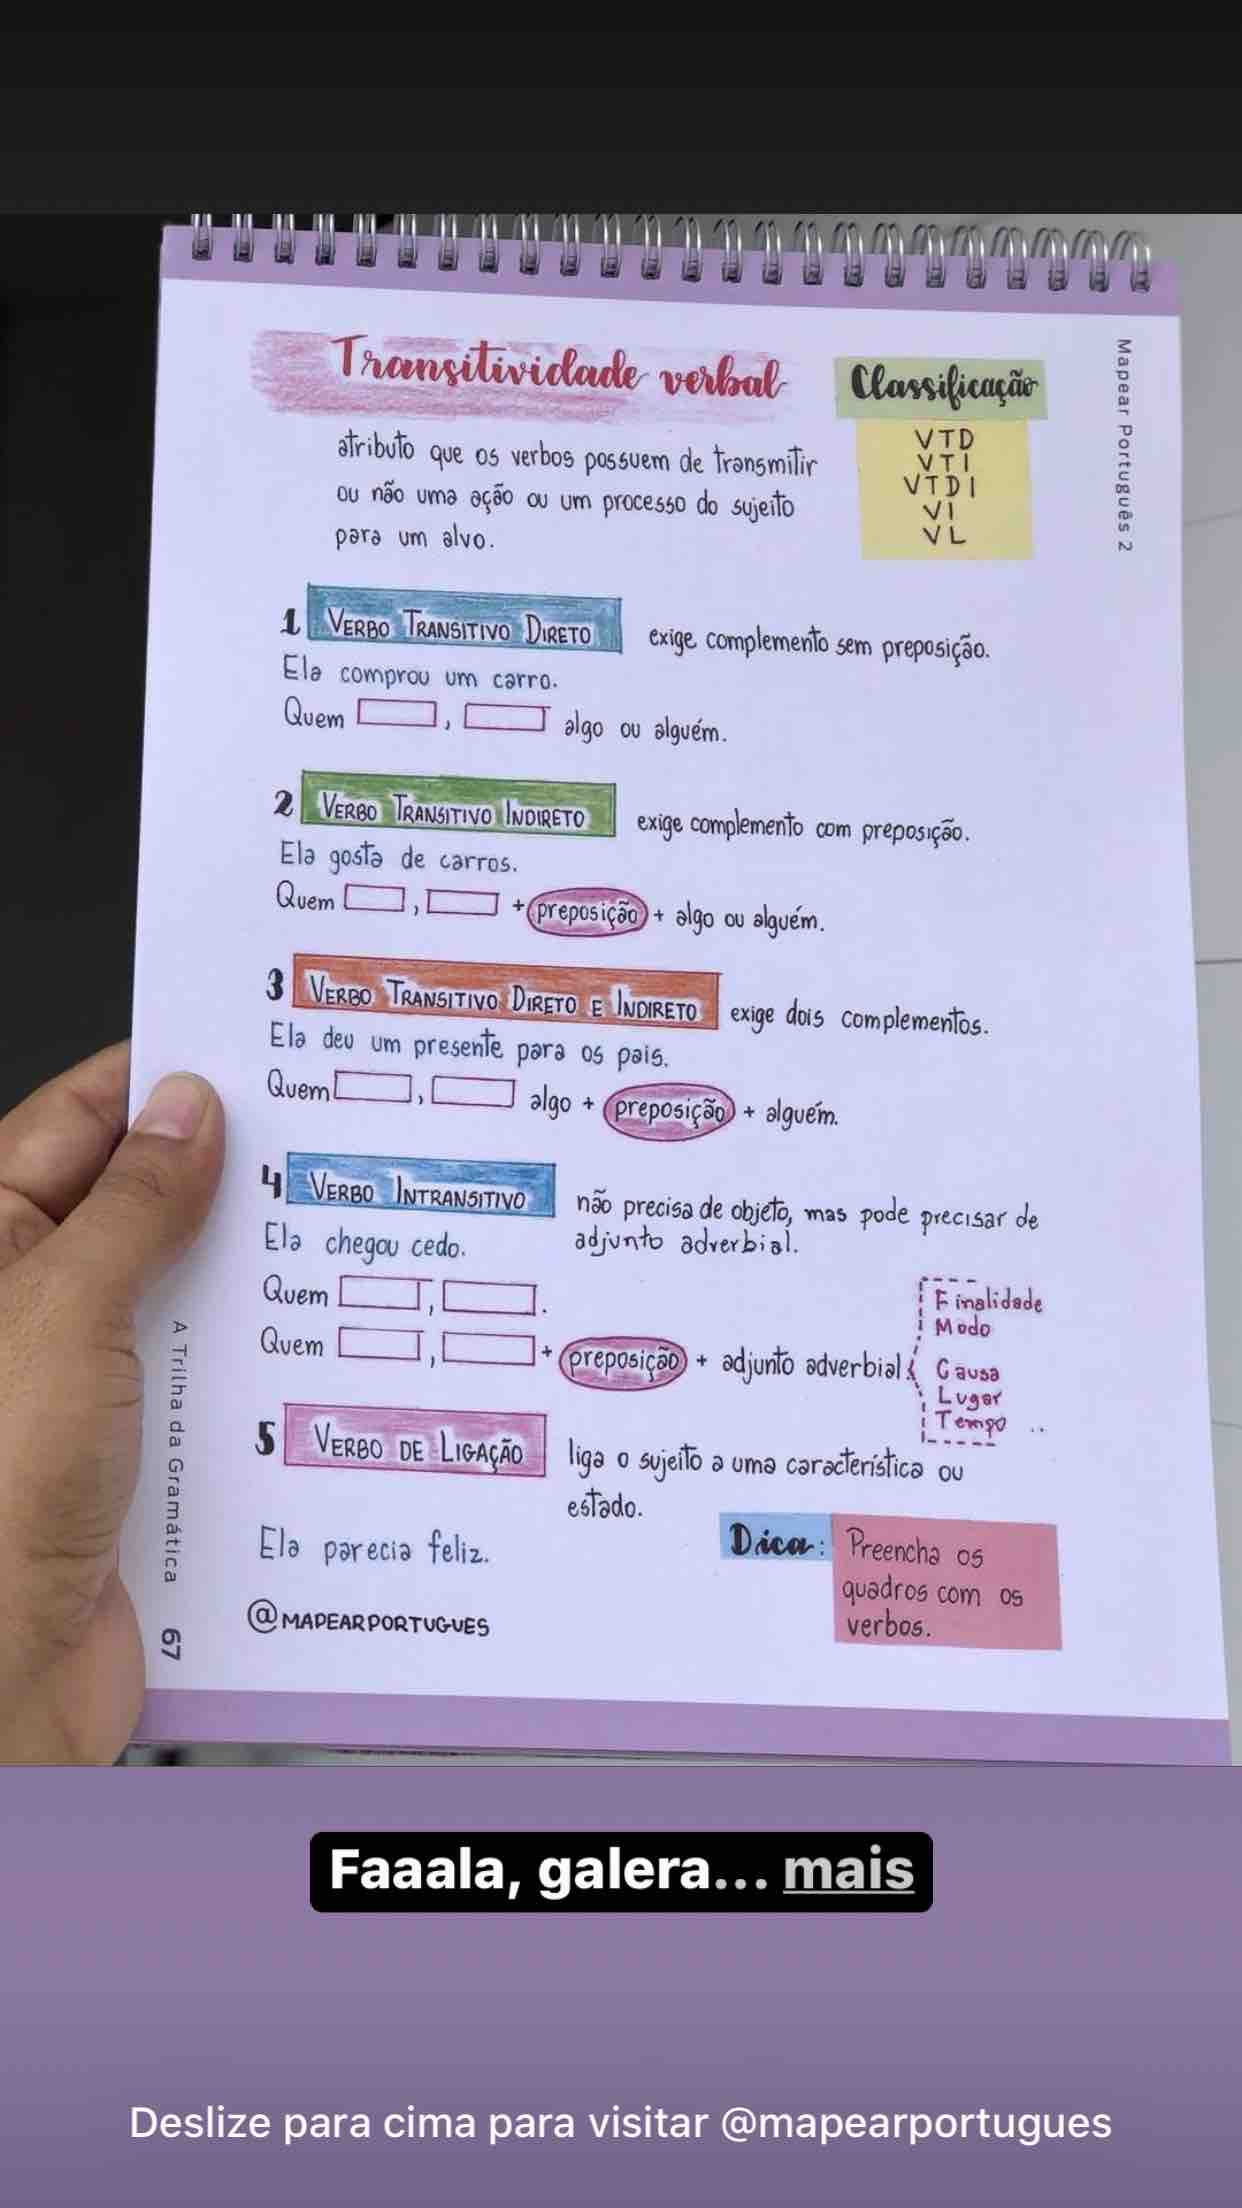 Transitividade verbal
Classificação
VTD
VTI
VTDI
VI
VL
Mapear Português 2
atributo que os verbos possuem de transmitir
ou não uma ação ou um processo do sujeito
para um alvo.
1 VERBO TRANSITIVO DIRETO exige complemento sem preposição.
Ela comprou um carro.
Quem , algo ou alguém.
2 VERBO TRANSITIVO INDIRETO exige complemento com preposição.
Ela gosta de carros.
Quem , + preposição + algo ou alguém.
3 VERBO TRANSITIVO DIRETO E INDIRETO exige dois complementos.
Ela deu um presente para os pais.
Quem , algo + preposição + alguém.
4 VERBO INTRANSITIVO não precisa de objeto, mas pode precisar de
adjunto adverbial.
Ela chegou cedo.
Quem , .
Quem , + preposição + adjunto adverbial
Finalidade
Modo
Causa
Lugar
Tempo ..
5 VERBO DE LIGAÇÃO liga o sujeito a uma característica ou
estado.
Ela parecia feliz.
Dica: Preencha os
quadros com os
verbos.
@MAPEARPORTUGUES
A Trilha da Gramática 67
Faaala, galera... mais
Deslize para cima para visitar @mapearportugues